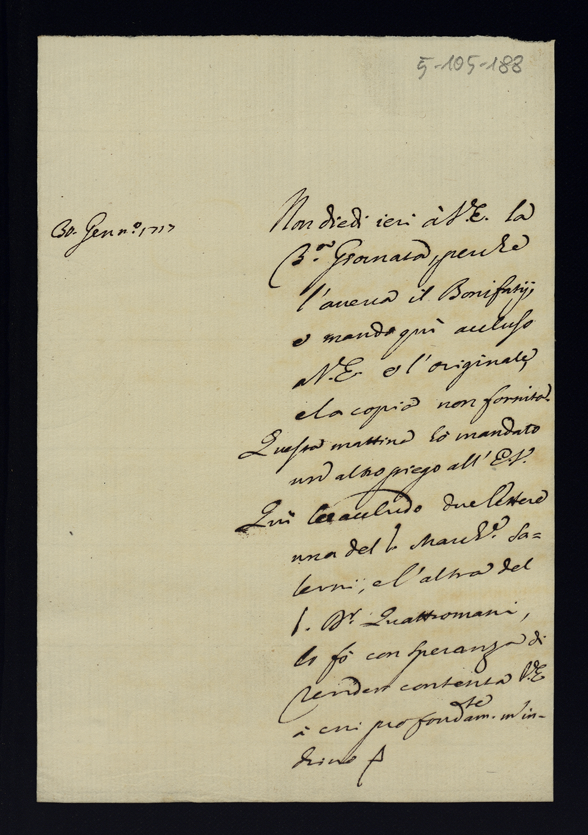 5-105-188
30. Genn.º 1717
Non diedi ieri à V.E. la
3.ª Giornata, perche
l'aveva il Bonifatij;
e mando quì accluso
a V.E. e l'originale,
e la copia non fornita.
Questa mattina hò mandato
un altro piego all' E.V.
Quì le accludo due lettere
una del S. March.e Sa=
lerni; e l'altra del
S. Dr. Quattromani,
lo fò con speranza di
render contenta V.E.
à cui profondam.te m'in-
chino